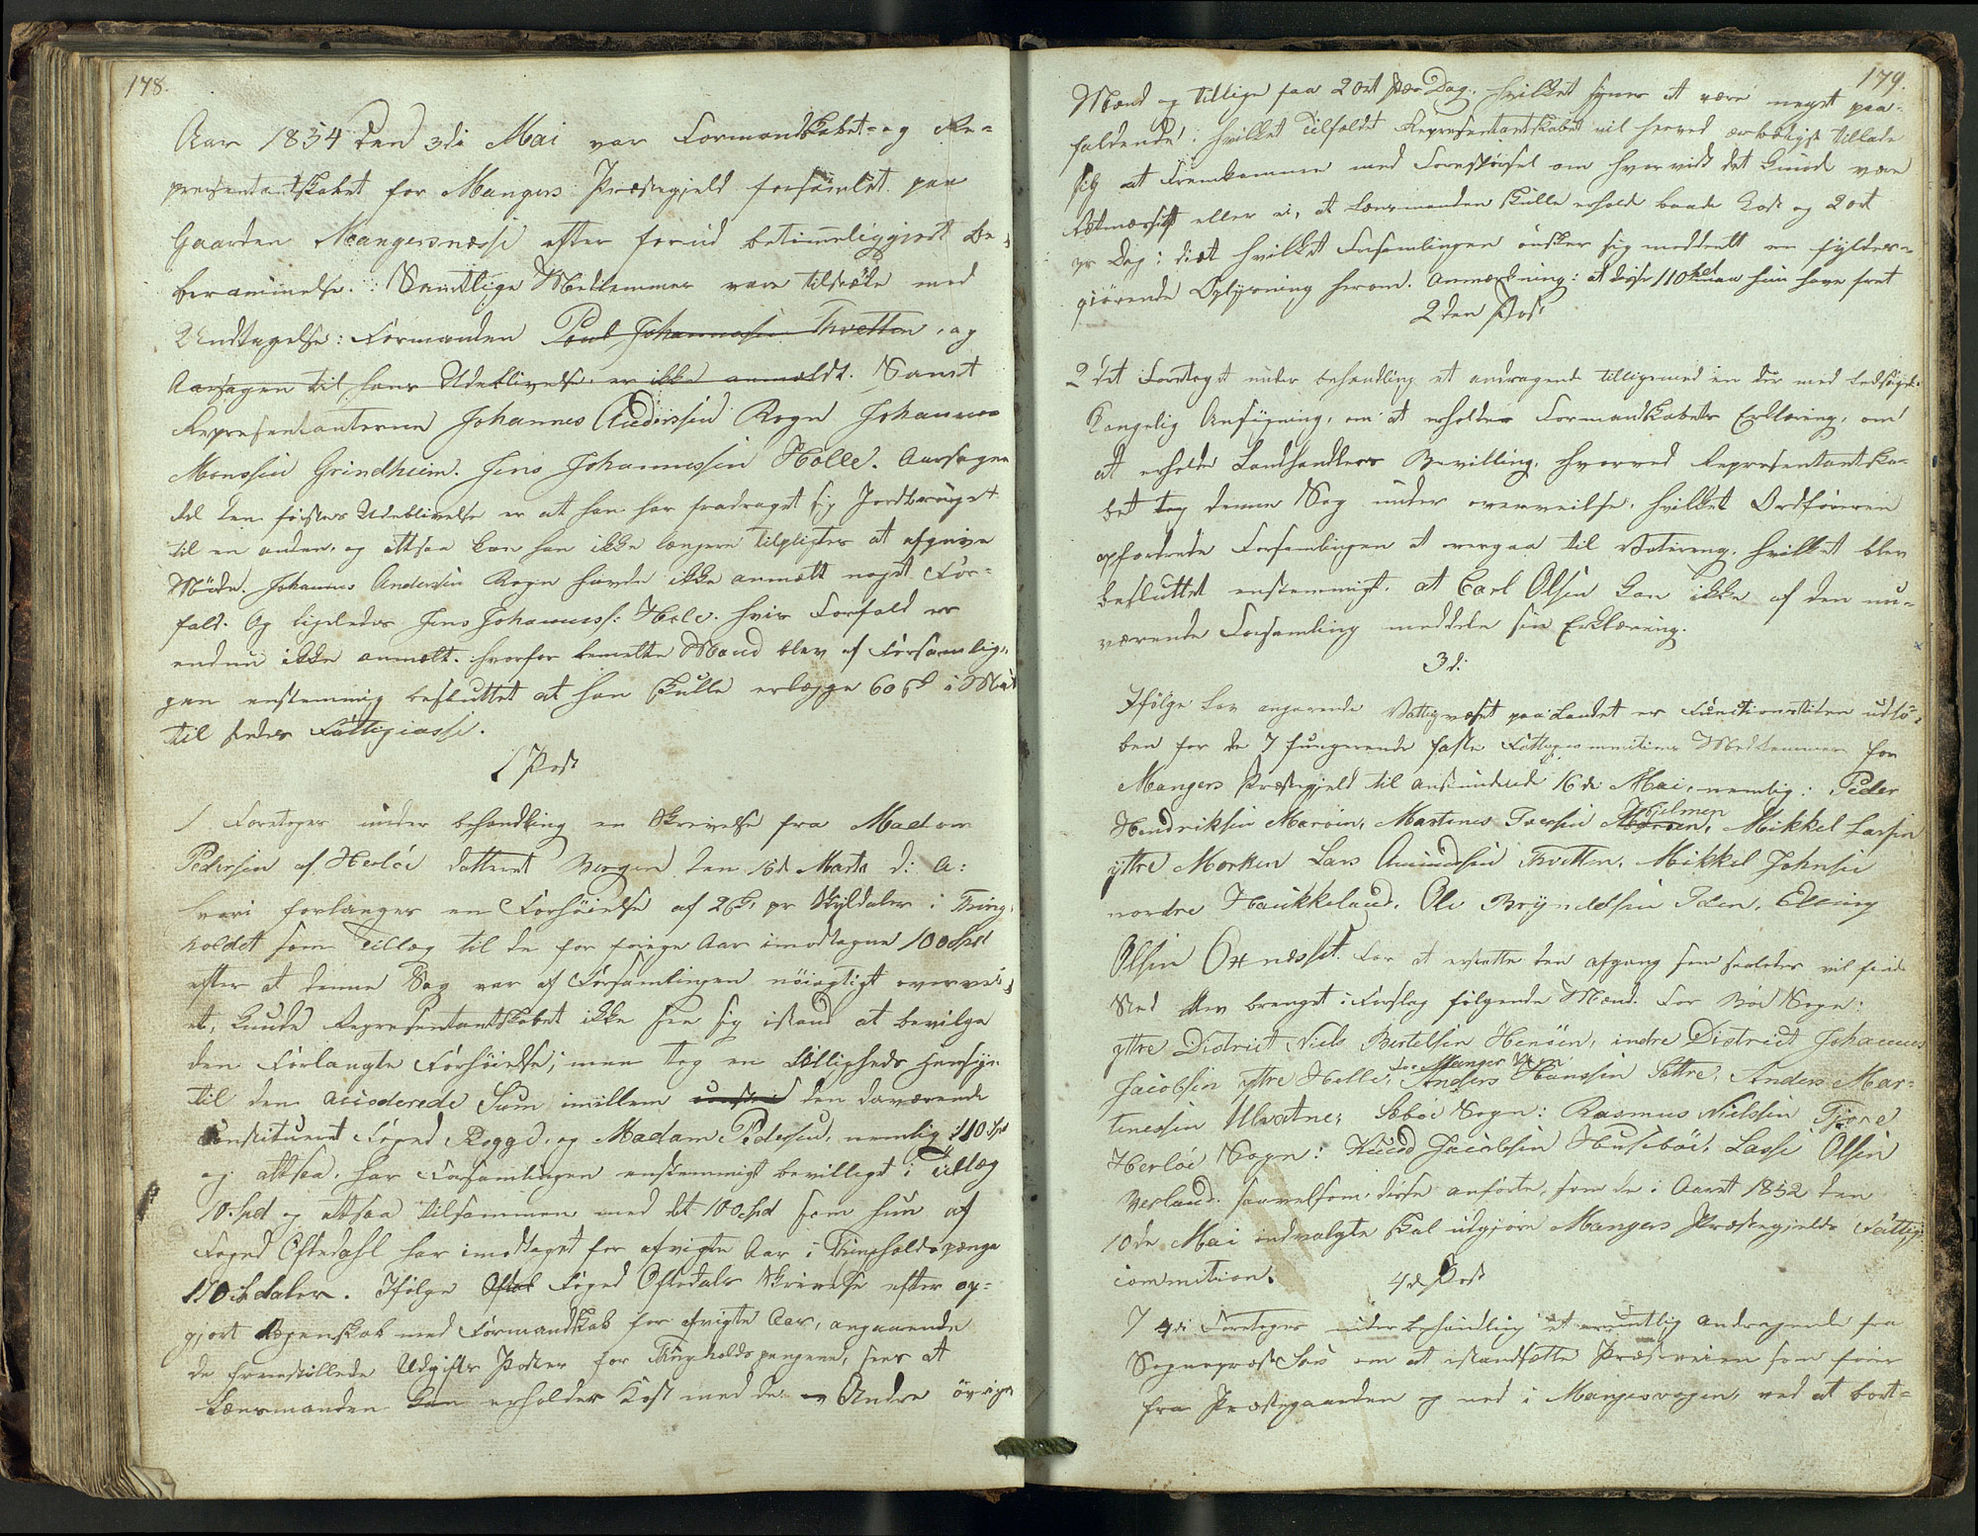 178.
Aar 1854 den 3di Mai var Formandskabet- og Re-
presentantskabet for Mangers Præstegjeld forsamlet paa
Gaarden Mangersnæsse efter forud betimeliggjort Be-
berammelse. Samtlige Medlemmer vare tilstæde med
Undtagelse: Formanden Poul Johannessen Tvetten, og
Aarsagen til hans Udeblivelse er ikke anmældt. Samt
Representanterne Johannes Andersen Rogn Johannes
Monssen Grindheim. Jens Johannessen Holle. Aarsagen
til den førstes Udeblivelse er at han har fradraget sig Jordbruget
til en anden, og altsaa kan han ikke længere tilpligtes at afgive
Møde. Johannes Andersen Rogn havde ikke anmældt noget For-
fald. Og ligeledes Jens Johanness: Hole. hvis Forfald er
endnu ikke anmældt. hvorfor bemeldte Mand blev af Forsamlin-
gen enstemmig besluttet at han skulle erlægge 60 s i Mulct
til stedets Fattigcasse.
1 Post
1 Foretages under behandling en Skrivelse fra Madam
Pedersen af Herløe datteret Bergen den 16de Marts d: A:
hvori forlanges en Forhøielse af 2 s pr Skyldaler i Thing-
holdet som Tillæg til de for forrige Aar imodtagne 100 Spd
efter at denne Sag var af Forsamlingen nøiagtigt overvei-
et, kunde Representantskabet ikke see sig istand at bevilge
den Forlangte Forhøielse; men tog en Billigheds hensyn
til den accorderede Sum imellem den daværende
Constitueret Foged Rogge, og Madam Pedersen, nemlig 110 Spd
og altsaa har Forsamlingen enstemmigt bevilliget i Tillæg
10 Spd og altsaa tilsammen med det 100 Spd som hun af
Foged Oftedahl har imodtaget for afvigte Aar i Thingholdspænge
110 Spdaler. Ifølge Oftdal Foged Oftedals Skrivelse efter op-
gjort Regenskab med Formandskab for afvigte Aar, angaaende
de fremstillede Udgifts Poster for Thingholdspengene, sees at
Lænsmanden kan erholder Kost med de Andre øvrige
179.
Mænd og tillige faa 2 ort per Dag. hvilket synes at være meget paa-
faldende! hvilket Tilfældet Representantskabet vil herved ærbødigst tillade
sig at fremkomme med Forespørsel om hvorvidt det kunde være
Retmæssigt eller ei, at Lensmanden skulle erholde baade Kost og 2 ort
pr Dag: hvilket Forsamlingen ønsker sig meddeelt en fyldest-
gjørende Oplysning herom. Anmærkning: at disse 110 Spd maa hun have fået
2den Post
2det Foretaget under behandling et andragende tilligemed en der med ledsaget
Kongelig Ansøgning, om at erholde Formandskabets Erklæring, om
at erholde Landhandlers Bevilling, hvorved Representantska-
bet tog denne Sag under overveielse. hvilket Ordføreren
opfordrede Forsamlingen at overgaa til Votering. hvilket blev
besluttet enstemmigt. at Carl Olsen kan ikke af den nu-
værende Forsamling meddele sin Erklæring.
3d:
Ifølge Lov angaaende Fattigvæset paa Landet er Functionstiden udlø-
ben for de 7 fungerende faste Fattigcommitions Medlemmer for
Mangers Præstegjeld til anstundende 16de Mai, nemlig: Peder
Hendriksen Marøen, Martines Iversen Marøen, Hjelmen Mikkel Larsen
yttre Morken Lars Amundsen Tvetten, Mikkel Johnsen
nordre Haukkeland, Ole Brynildsen Iden, Elling
Olsen Oxnæsset. For at erstatte den afgang som saaledes vil finde
Sted blev bragt i Forslag følgende Mænd. For Bøe Sogn:
yttre District Niels Bertelsen Henøen, indre District Johannes
Jacobsen yttre Helle, for Manger Sogn Anders Hanssen Sættre, Anders Mar-
tenessen Ulvatne; Sæbøe Sogn: Rasmus Nielssen Fjore
Herløe Sogn: Knud Jacobsen Husebøe, Lasse Olsen
Berland. saavelsom disse anførte, som de i Aaret 1852 den
10de Mai indvalgte skal udgjøre Mangers Præstegjelds Fattig-
commition.
4de Post
7 4di Foretages under behandling et mundtlig andragende fra
Sognepræst om at istandsætte Præsteveien som fører
fra Præstegaarden og ned i Mangersvogen, ved at bort-